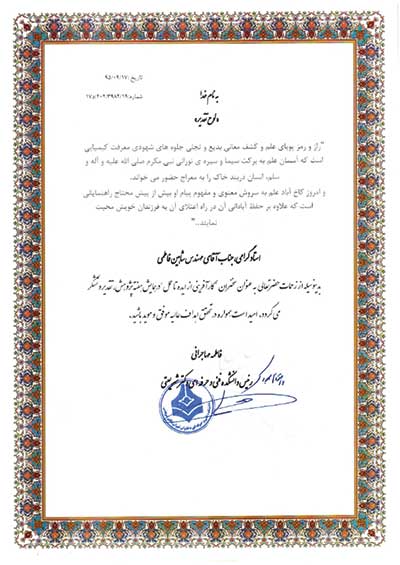 تاریخ: ۹۵/۰۹/۱۷
به نام خدا
شماره: ۱۷ه/۲۰۲/۳۹۸۲/۱۹
«لوح تقدیر»
"راز و رمز پویای علم و کشف معانی بدیع و تجلی جلوه های شهودی معرفت کیمیایی
است که آسمان علم به برکت سیما و سیره ی نورانی نبی مکرم صلی الله علیه و آله و
سلم، انسان دربند خاک را به معراج حضور می خواند.
و امروز کاخ آباد علم به سروش معنوی و مفهوم پیام او بیش از پیش محتاج راهنمایانی
است که علاوه بر حفظ آبادانی آن در راه اعتلای آن به فرزندان خویش محبت
نمایند..."
استاد گرامی، جناب آقای مهندس شاهین فاطمی
بدینوسیله از زحمات حضرتعالی به عنوان سخنران "کارآفرینی از ایده تا عمل" در همایش هفته پژوهش، تقدیر و تشکر
می گردد. امید است همواره در تحقق اهداف عالیه موفق و موید باشید.
فاطمه مهاجرانی
رئیس دانشکده فنی و حرفه ای دکتر شریعتی